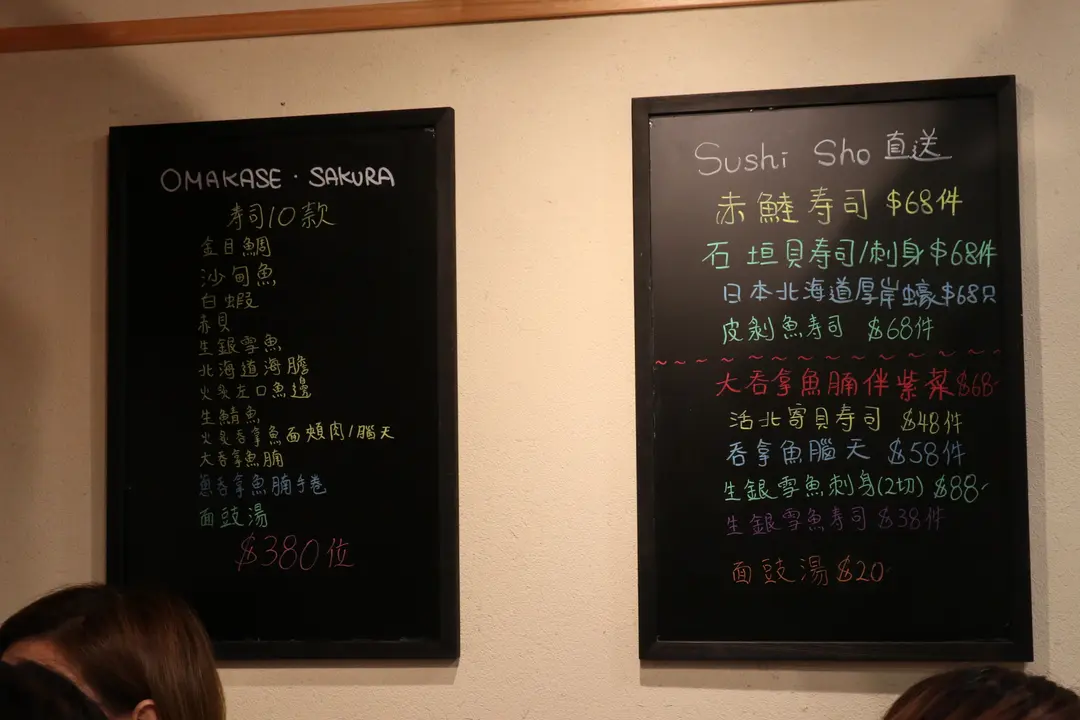 OMAKASE · SAKURA
寿司10款
金目鯛
沙甸魚
白蝦
赤貝
生銀雪魚
北海道海膽
火炙左口魚邊
生鯖魚
火炙吞拿魚面頰肉/腦天
大吞拿魚腩
蔥吞拿魚腩手卷
面豉湯
$380位
Sushi Sho 直送
赤鯥寿司 $68件
石垣貝寿司/刺身 $68件
日本北海道厚岸蠔 $68只
皮剝魚寿司 $68件
~ ~ ~ ~ ~ ~ ~ ~ ~ ~ ~ ~ ~ ~
大吞拿魚腩伴紫菜 $68-
活北寄貝寿司 $48件
吞拿魚腦天 $58件
生銀雪魚刺身(2切) $88-
生銀雪魚寿司 $38件
面豉湯 $20-